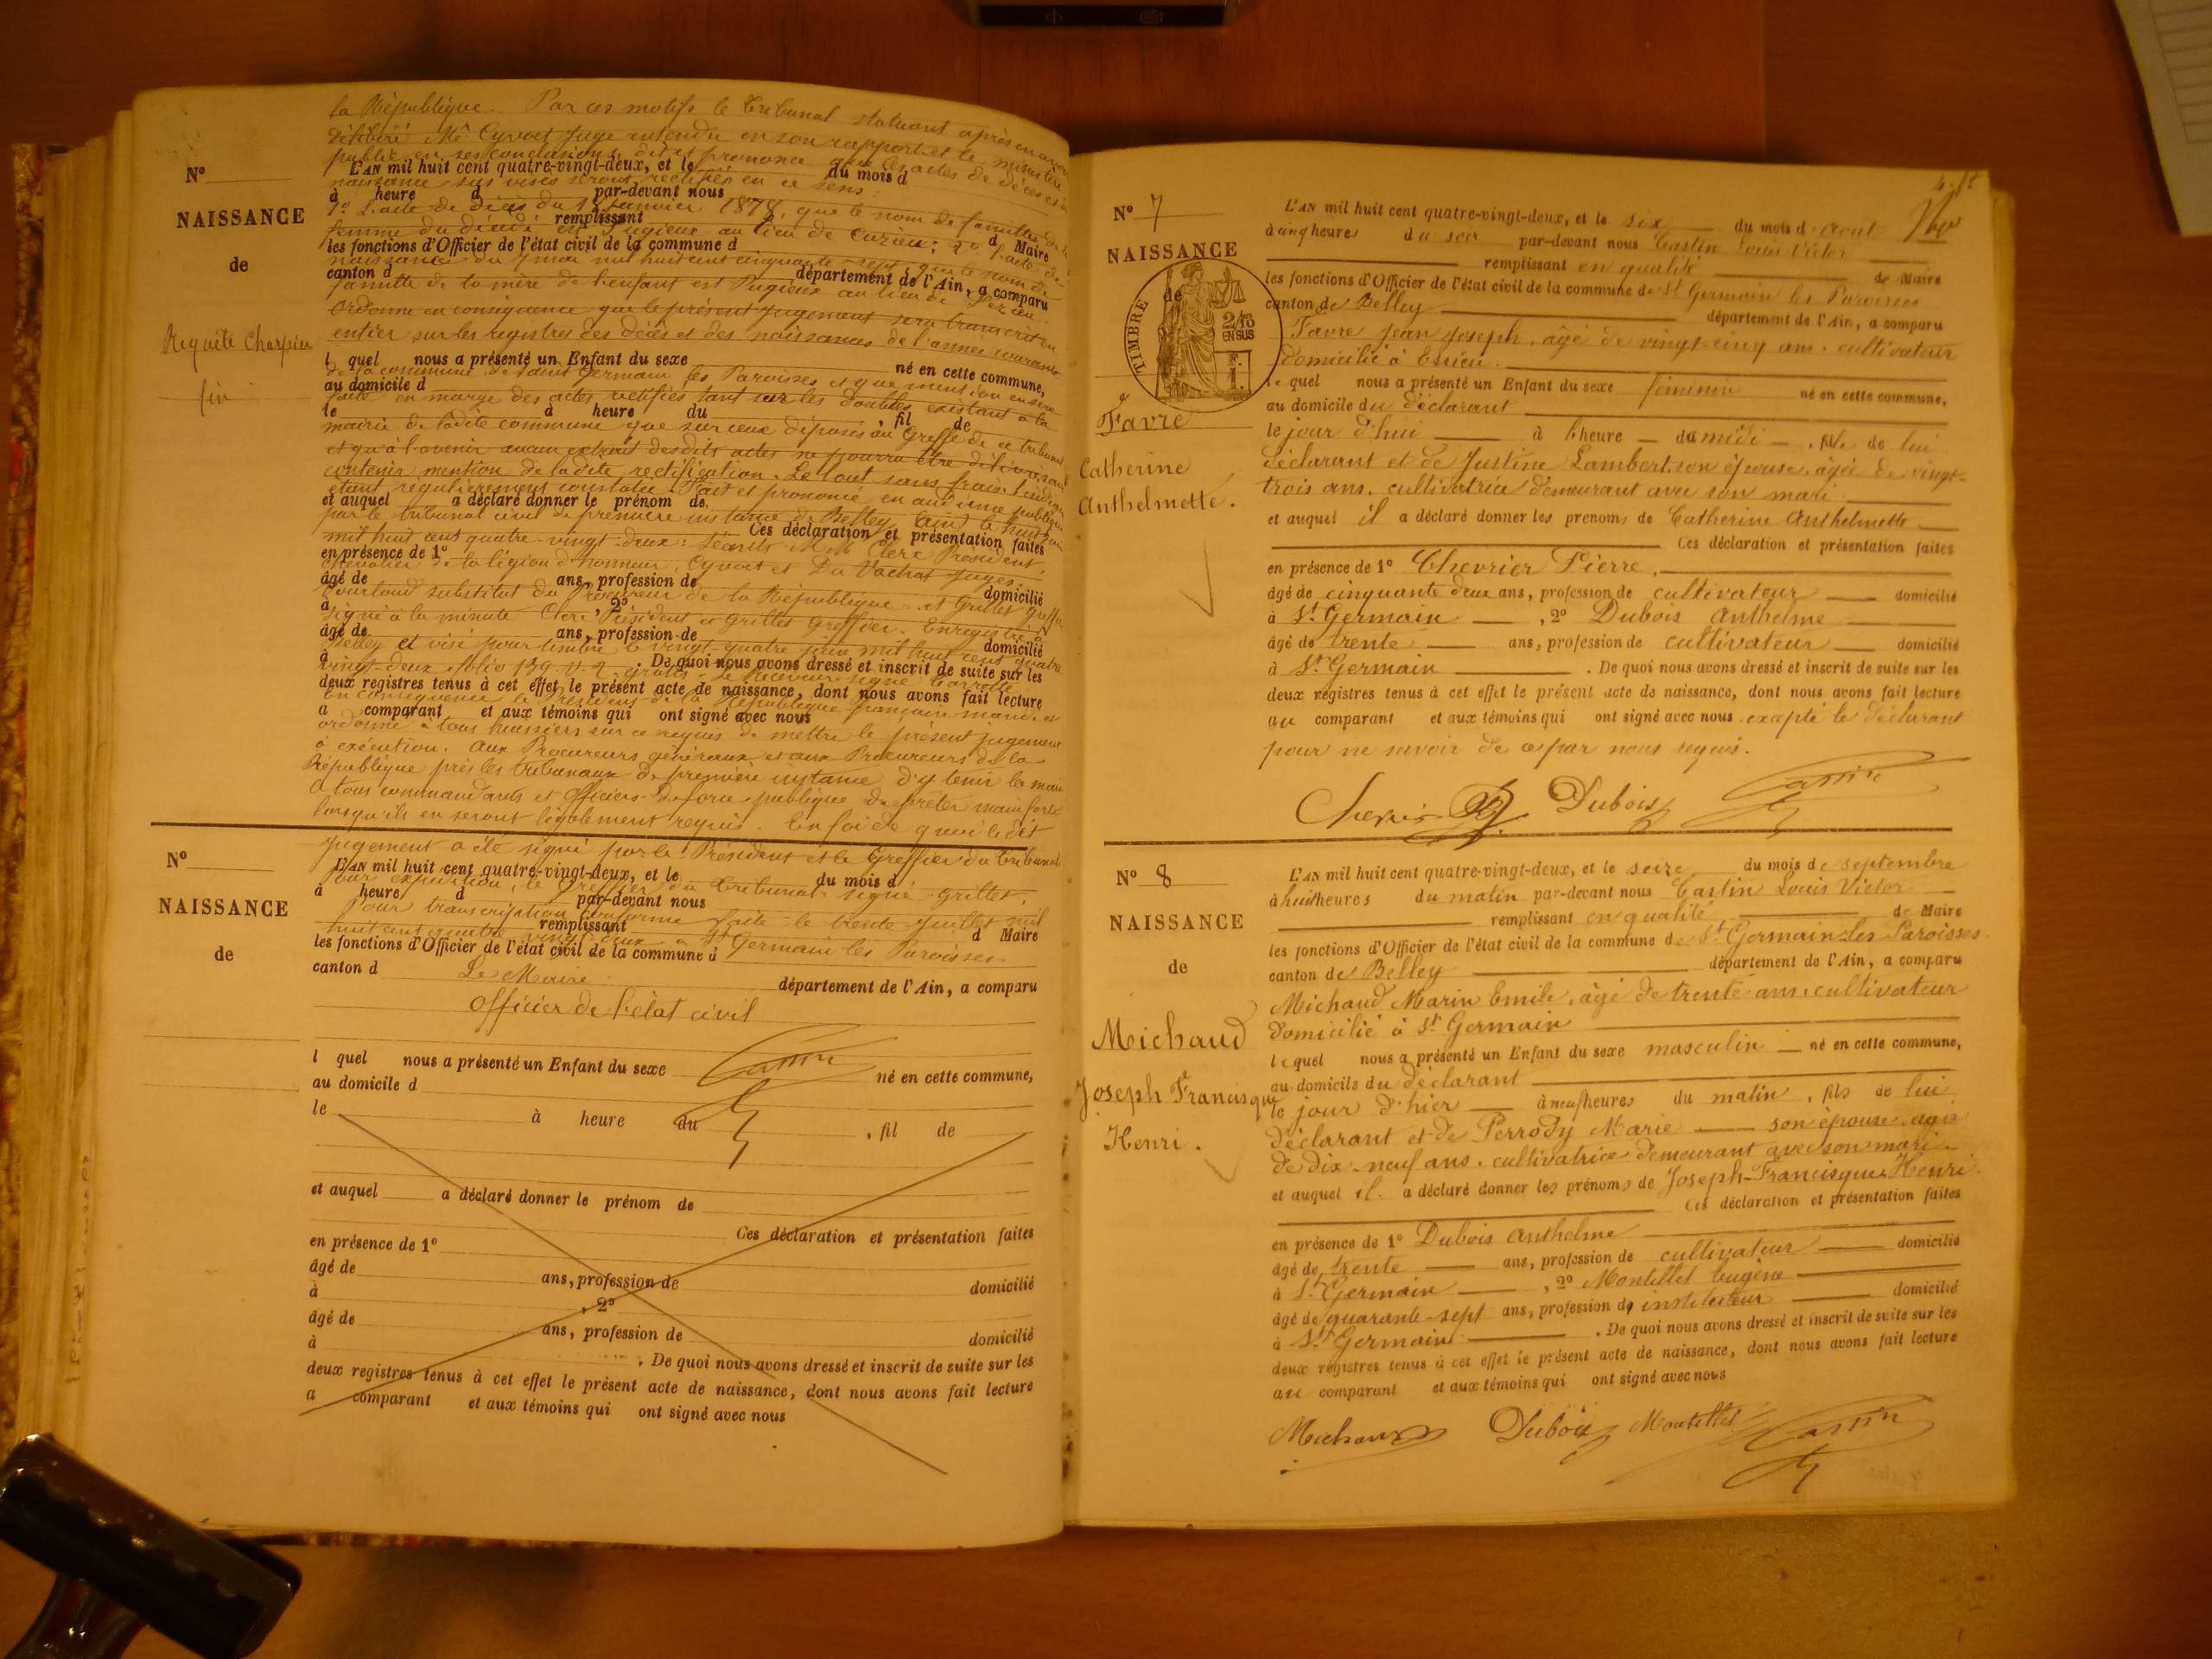 la République. Par ces motifs le Tribunal statuant après en avoir
délibéré Mr Cyvoct Juge entendu en son rapport et le ministère
public en ses conclusions, dit et prononce que les actes de décès et de
N° L'AN mil huit cent quatre-vingt-deux, et le du mois d
naissance sus visés seront rectifiés en ce sens :
à heure d par-devant nous
1° L'acte de décès du janvier 1878, que le nom de famille de la
NAISSANCE remplissant
femme du décédé est Pugieux au lieu de Curieu; 2° l'acte de
les fonctions d'Officier de l'état civil de la commune d d Maire
naissance du 7 mai mil huit cent cinquante-sept, que le nom de
de
canton d département de l'Ain, a comparu
famille de la mère de l'enfant est Pugieux au lieu de
Ordonne en conséquence que le présent jugement sera transcrit en
entier sur les registres des décès et des naissances de l'année courante
Requête Charpin
fin
l quel nous a présenté un Enfant du sexe né en cette commune,
de la commune de Saint Germain les Paroisses et que mention en sera
au domicile d
faite en marge des actes rectifiés tant sur les doubles existant à la
le à heure du , fil de
mairie de ladite commune que sur ceux déposés au Greffe de ce tribunal
et qu'à l'avenir aucun extrait desdits actes ne pourra être délivré sans
contenir mention de ladite rectification. Le tout sans frais
étant régulièrement constatée. Fait et prononcé en audience publique
et auquel a déclaré donner le prénom de
par le tribunal civil de première instance de Belley (Ain) le huit juin
mil huit cent quatre-vingt-deux : Séants M.M. Clerc Président,
Ces déclaration et présentation faites
en présence de 1°
chevalier de la légion d'honneur, Cyvoct et Du Vachat juges.
âgé de ans, profession de domicilié
substitut du Procureur de la République et Grillet greffier
à , 2°
signé à la minute Clerc, Président et Grillet Greffier. Enregistré à
âgé de ans, profession de domicilié
Belley et visé pour timbre le vingt-quatre juin mil huit cent quatre
à . De quoi nous avons dressé et inscrit de suite sur les
vingt-deux, folio 139 gratis. Le Receveur signé
deux registres tenus à cet effet le présent acte de naissance, dont nous avons fait lecture
En conséquence le Président de la République française mande et
a comparant et aux témoins qui ont signé avec nous
ordonne à tous huissiers sur ce requis de mettre le présent jugement
à exécution. Aux Procureurs généraux et aux Procureurs de la
République près les tribunaux de première instance d'y tenir la main
A tous commandants et Officiers de force publique de prêter main forte
lorsqu'ils en seront légalement requis. En foi de quoi ledit
jugement a été signé par le Président et le Greffier du tribunal
N° L'AN mil huit cent quatre-vingt-deux, et le du mois d
Pour expédition, le Greffier du Tribunal signé Grillet.
à heure d par-devant nous
NAISSANCE
Pour transcription conforme faite le trente juillet mil
remplissant d Maire
huit cent quatre vingt deux à St Germain les Paroisses
les fonctions d'Officier de l'état civil de la commune d
de
canton d département de l'Ain, a comparu
Le Maire
Officier de l'état civil
l quel nous a présenté un Enfant du sexe né en cette commune,
Castin
au domicile d
le à heure du , fil de
et auquel a déclaré donner le prénom de
Ces déclaration et présentation faites
en présence de 1°
âgé de ans, profession de domicilié
à , 2°
âgé de ans, profession de domicilié
à . De quoi nous avons dressé et inscrit de suite sur les
deux registres tenus à cet effet le présent acte de naissance, dont nous avons fait lecture
a comparant et aux témoins qui ont signé avec nous
N° 7
NAISSANCE
de
TIMBRE
2/10 EN SUS
Favre
Catherine
Anthelmette.
L'AN mil huit cent quatre-vingt-deux, et le six du mois d'août
à cinq heures du soir par-devant nous Castin Louis Victor
remplissant en qualité de Maire
les fonctions d'Officier de l'état civil de la commune de St Germain les Paroisses
canton de Belley département de l'Ain, a comparu
Favre Jean Joseph, âgé de vingt-cinq ans, cultivateur
domicilié à Essieu.
le quel nous a présenté un Enfant du sexe féminin né en cette commune,
au domicile du déclarant
le jour d'hui à heure du midi , fille de lui
déclarant et de Justine Lambert son épouse, âgée de vingt-
trois ans, cultivatrice demeurant avec son mari
et auquel il a déclaré donner les prénoms de Catherine Anthelmette
Ces déclaration et présentation faites
en présence de 1° Chevrier Pierre,
âgé de cinquante deux ans, profession de cultivateur domicilié
à St Germain , 2° Dubois Anthelme
âgé de trente ans, profession de cultivateur domicilié
à St Germain . De quoi nous avons dressé et inscrit de suite sur les
deux registres tenus à cet effet le présent acte de naissance, dont nous avons fait lecture
au comparant et aux témoins qui ont signé avec nous excepté le déclarant
pour ne savoir de ce par nous requis.
Dubois Castin
N° 8
NAISSANCE
de
Michaud
Joseph Francisque
Henri.
L'AN mil huit cent quatre-vingt-deux, et le seize du mois de septembre
à huit heures du matin par-devant nous Castin Louis Victor
remplissant en qualité de Maire
les fonctions d'Officier de l'état civil de la commune de St Germain-les Paroisses
canton de Belley département de l'Ain, a comparu
Michaud Marin Emile, âgé de trente ans, cultivateur
domicilié à St Germain
le quel nous a présenté un Enfant du sexe masculin né en cette commune,
au domicile du déclarant
le jour d'hier à neuf heures du matin , fils de lui
déclarant et de Perrody Marie son épouse, âgée
de dix-neuf ans, cultivatrice demeurant avec son mari
et auquel il a déclaré donner les prénoms de Joseph-Francisque Henri
Ces déclaration et présentation faites
en présence de 1° Dubois Anthelme
âgé de trente ans, profession de cultivateur domicilié
à St Germain , 2° Montillet Eugène
âgé de quarante-sept ans, profession de instituteur domicilié
à St Germain . De quoi nous avons dressé et inscrit de suite sur les
deux registres tenus à cet effet le présent acte de naissance, dont nous avons fait lecture
au comparant et aux témoins qui ont signé avec nous
Michaud Dubois Montillet Castin